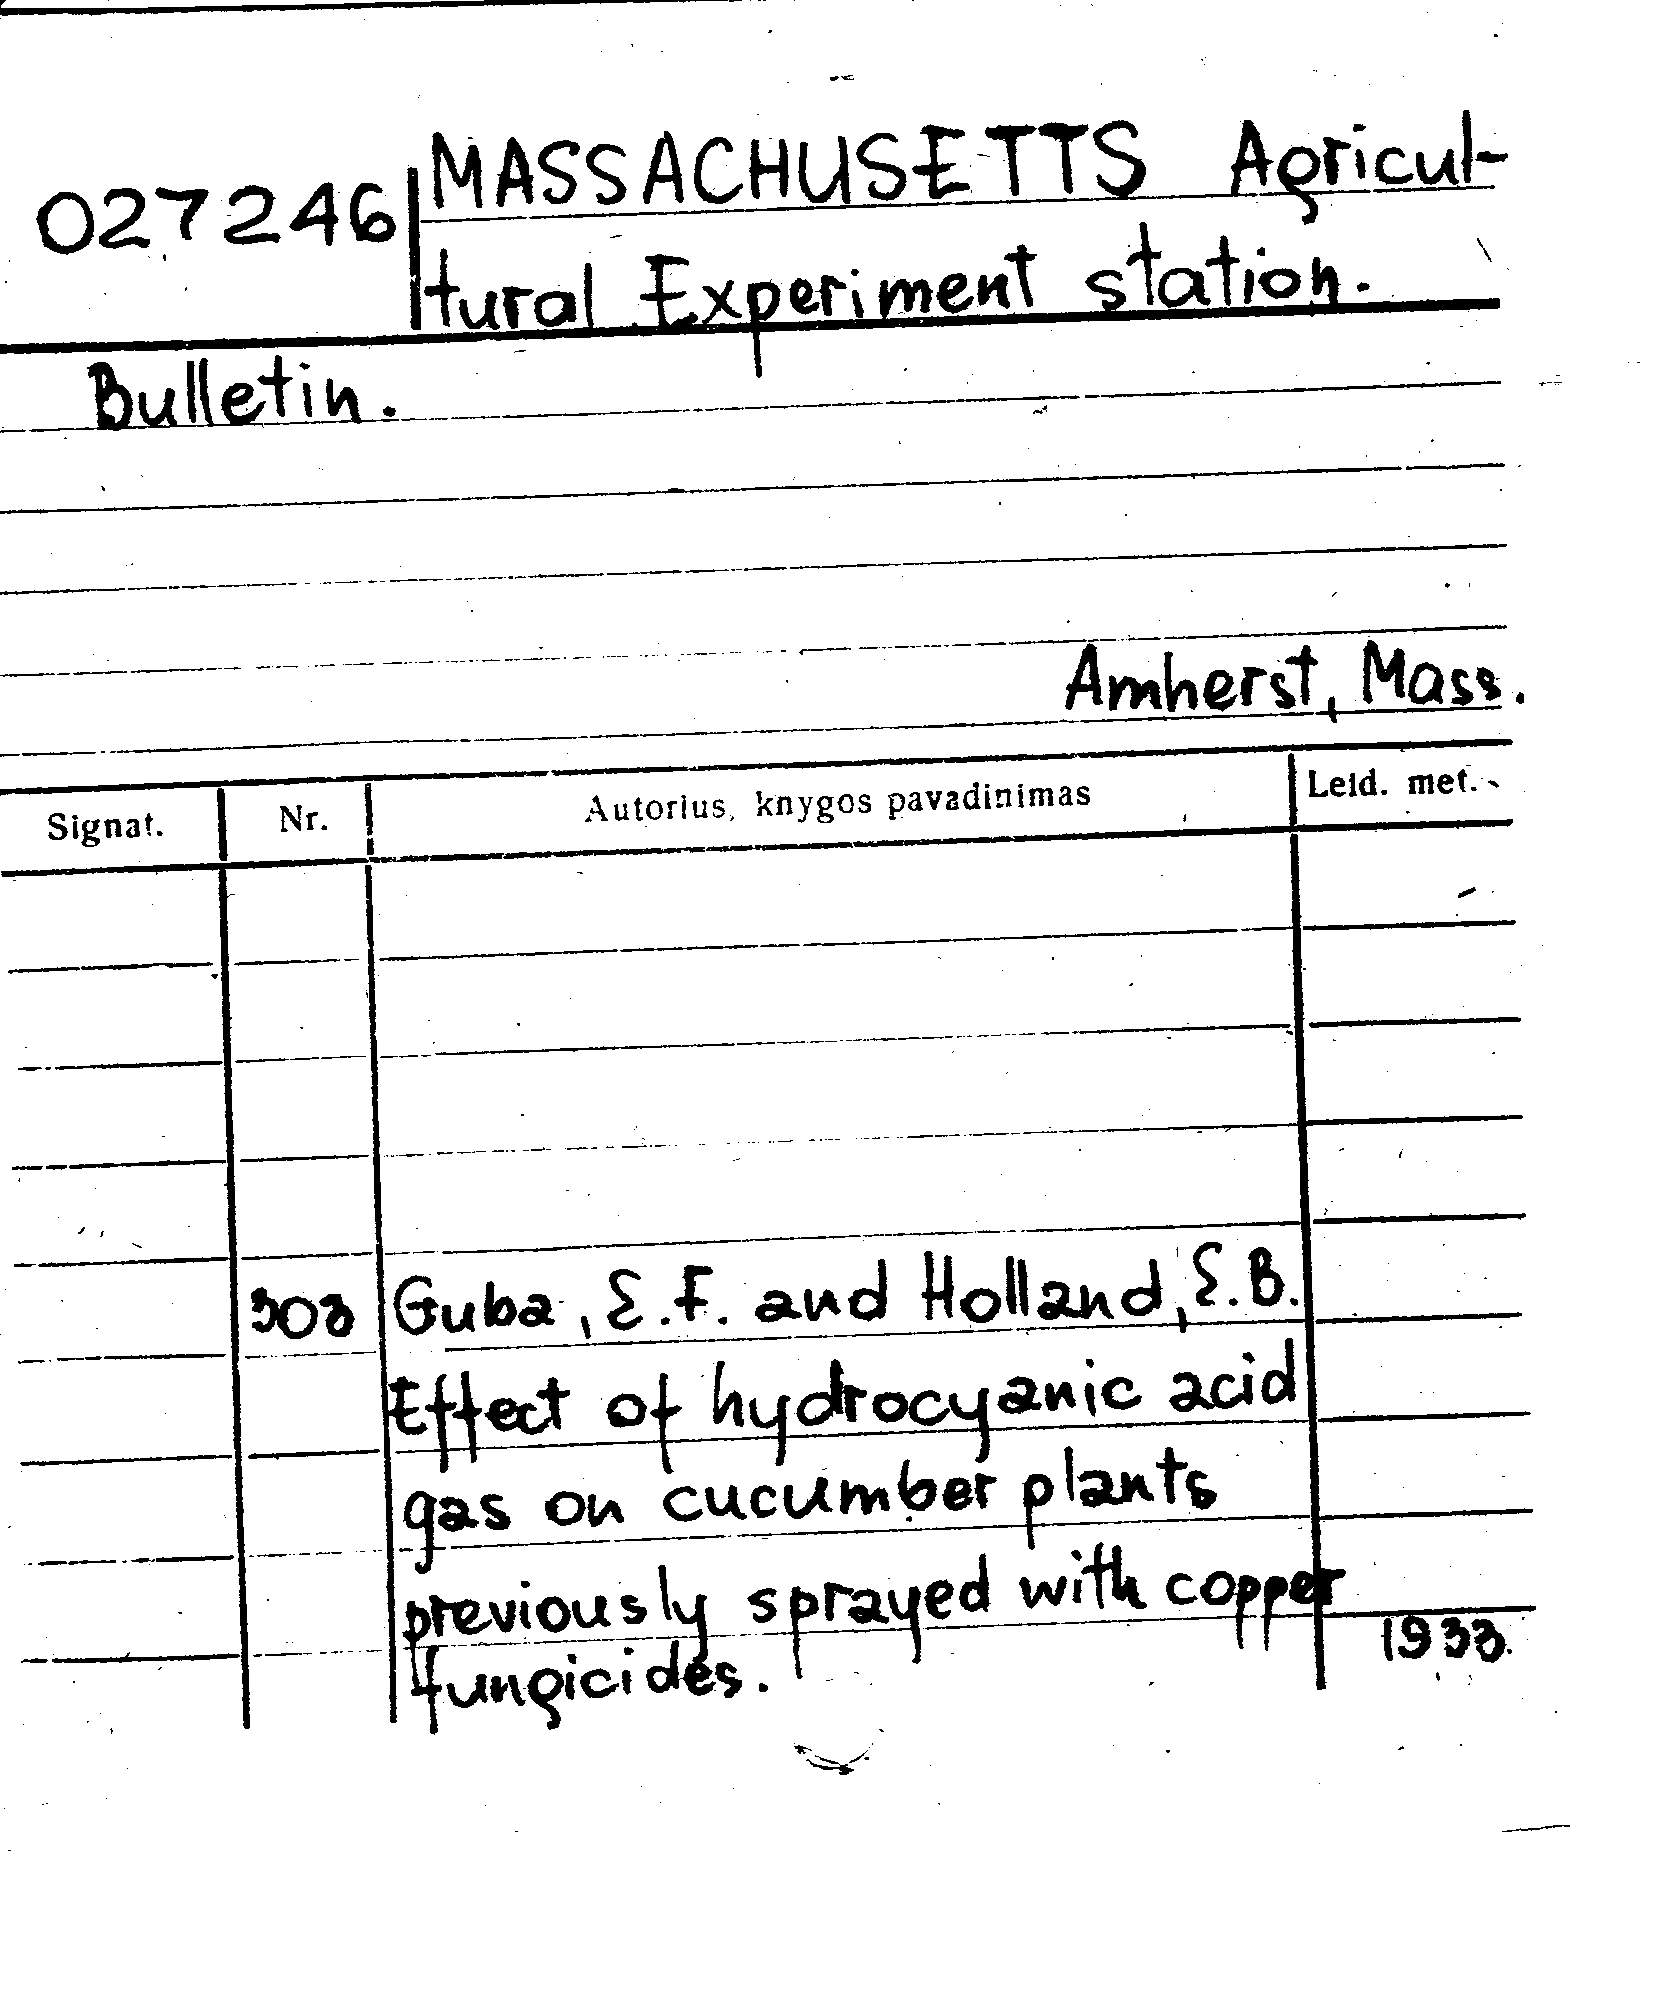 027246 MASSACHUSETTS Agricul-
tural Experiment station.
Bulletin.
Amherst, Mass.
Signat. Nr. Autorius, knygos pavadinimas Leid. met.
303 Guba, E.F. and Holland, E.B.
Effect of hydrocyanic acid
gas on cucumber plants
previously sprayed with copper
fungicides. 1933.